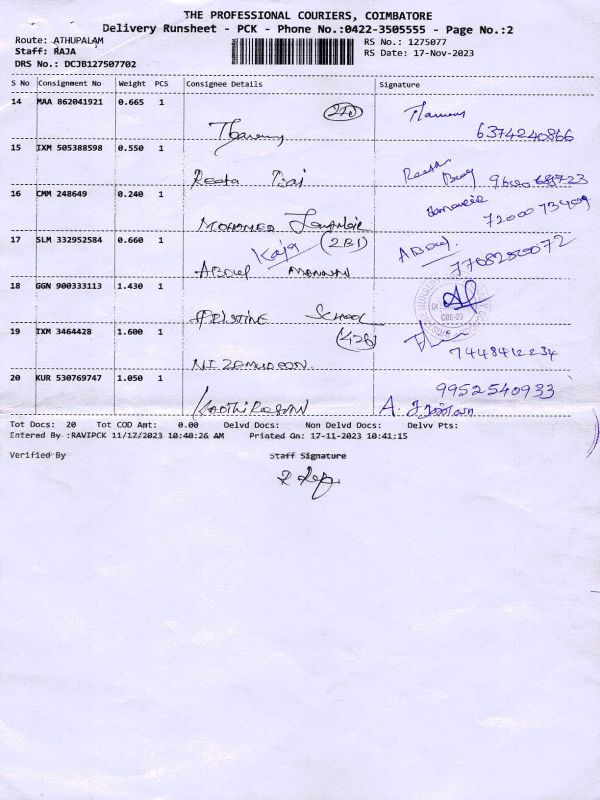 THE PROFESSIONAL COURIERS, COIMBATORE
Delivery Runsheet - PCK - Phone No.:0422-3505555 - Page No.:2
Route: ATHUPALAM RS No.: 1275077
Staff: RAJA RS Date: 17-Nov-2023
DRS No.: DCJB127507702
S No Consignment No Weight PCS Consignee Details Signature
14 MAA 862041921 0.665 1
6374240866
15 IXM 505388598 0.550 1
Reeta Bai
16 CMM 248649 0.240 1
MOHAMED
17 SLM 332952584 0.660 1 Kaja (2B1) Abdul.
ABDUL MANNAN 77082500072
18 GGN 900333113 1.430 1
PRISTINE SCHOOL CBE-23
19 IXM 3464428 1.600 1 (42B)
NIZAMUDEEN. 7448412234
20 KUR 530769747 1.050 1 9952540933
KADHIRESAN A.
Tot Docs: 20 Tot COD Amt: 0.00 Delvd Docs: Non Delvd Docs: Delvv Pts:
Entered By :RAVIPCK 11/17/2023 10:40:26 AM Printed On: 17-11-2023 10:41:15
Verified By Staff Signature